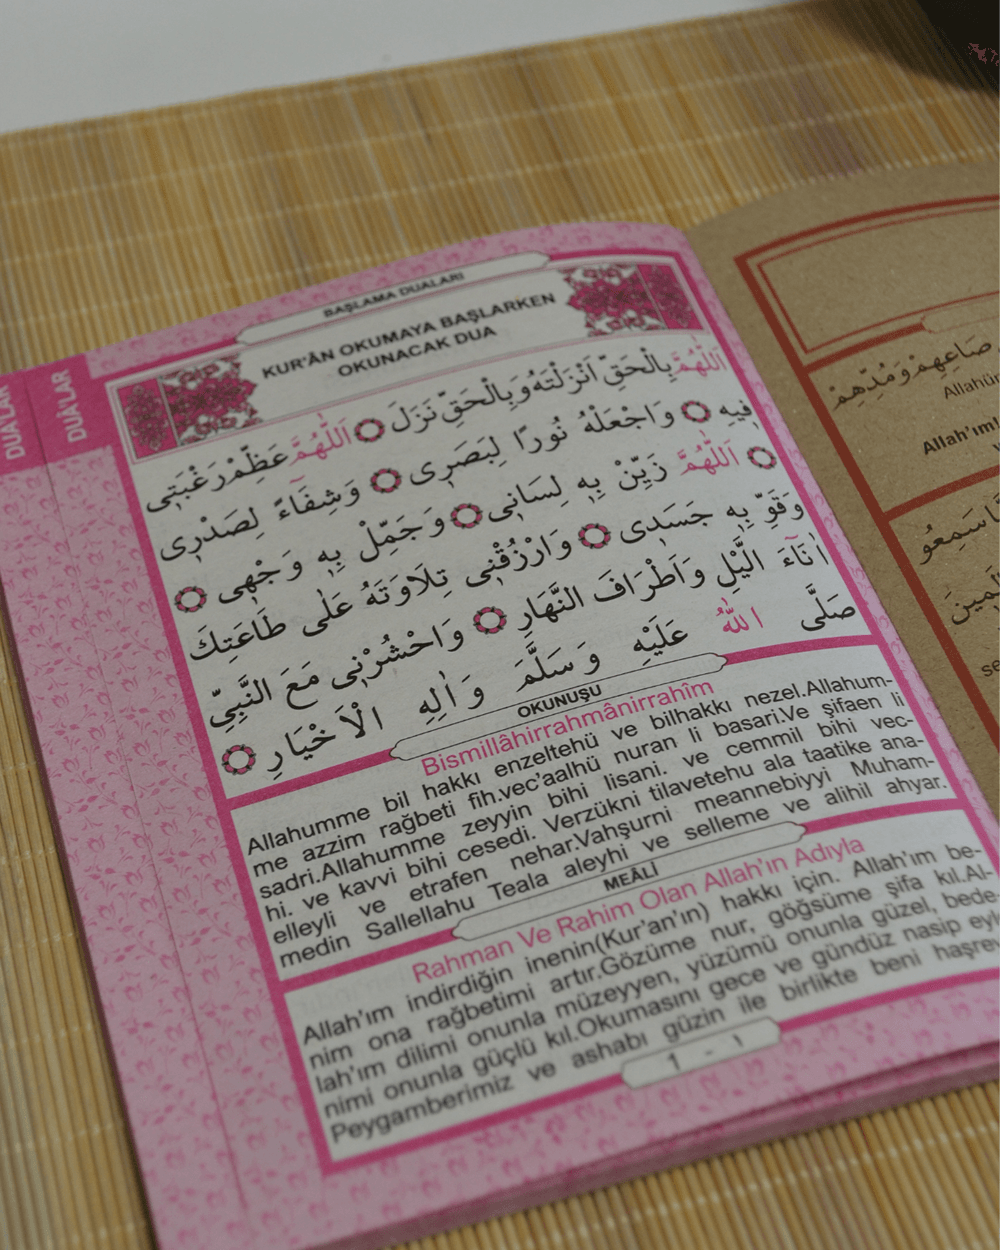 DUA'LAR
DUA'LAR
BAŞLAMA DUALARI
KUR'ÂN OKUMAYA BAŞLARKEN
OKUNACAK DUA
اَللّٰهُمَّ بِالْحَقِّ اَنْزَلْتَهُ وَبِالْحَقِّ نَزَلَ ۝ اَللّٰهُمَّ عَظِّمْ رَغْبَتِى
فِيهِ ۝ وَاجْعَلْهُ نُورًا لِبَصَرِى ۝ وَشِفَٓاءً لِصَدْرِى
۝ اَللّٰهُمَّ زَيِّنْ بِهِ لِسَانِى ۝ وَجَمِّلْ بِهِ وَجْهِى ۝
وَقَوِّ بِهِ جَسَدِى ۝ وَارْزُقْنِى تِلَاوَتَهُ عَلٰى طَاعَتِكَ
اٰنَٓاءَ الَّيْلِ وَاَطْرَافَ النَّهَارِ ۝ وَاحْشُرْنِى مَعَ النَّبِيِّ
صَلَّى اللّٰهُ عَلَيْهِ وَسَلَّمَ وَاٰلِهِ الْاَخْيَارِ ۝
OKUNUŞU
Bismillâhirrahmânirrahîm
Allahumme bil hakkı enzeltehü ve bilhakkı nezel.Allahum-
me azzim rağbeti fih.vec'aalhü nuran li basari.Ve şifaen li
sadri.Allahumme zeyyin bihi lisani. ve cemmil bihi vec-
hi. ve kavvi bihi cesedi. Verzükni tilavetehu ala taatike ana-
elleyli ve etrafen nehar.Vahşurni meannebiyyi Muham-
medin Sallellahu Teala aleyhi ve selleme ve alihil ahyar.
MEÂLİ
Rahman Ve Rahim Olan Allah'ın Adıyla
Allah'ım indirdiğin inenin(Kur'an'ın) hakkı için. Allah'ım be-
nim ona rağbetimi artır.Gözüme nur, göğsüme şifa kıl.Al-
lah'ım dilimi onunla müzeyyen, yüzümü onunla güzel, bede
nimi onunla güçlü kıl.Okumasını gece ve gündüz nasip eyl
Peygamberimiz ve ashabı güzin ile birlikte beni haşre
1 - ١
صَاعِهِمْ وَمُدِّهِمْ
Allahü
Allah'ım!
سَمِعُو
se